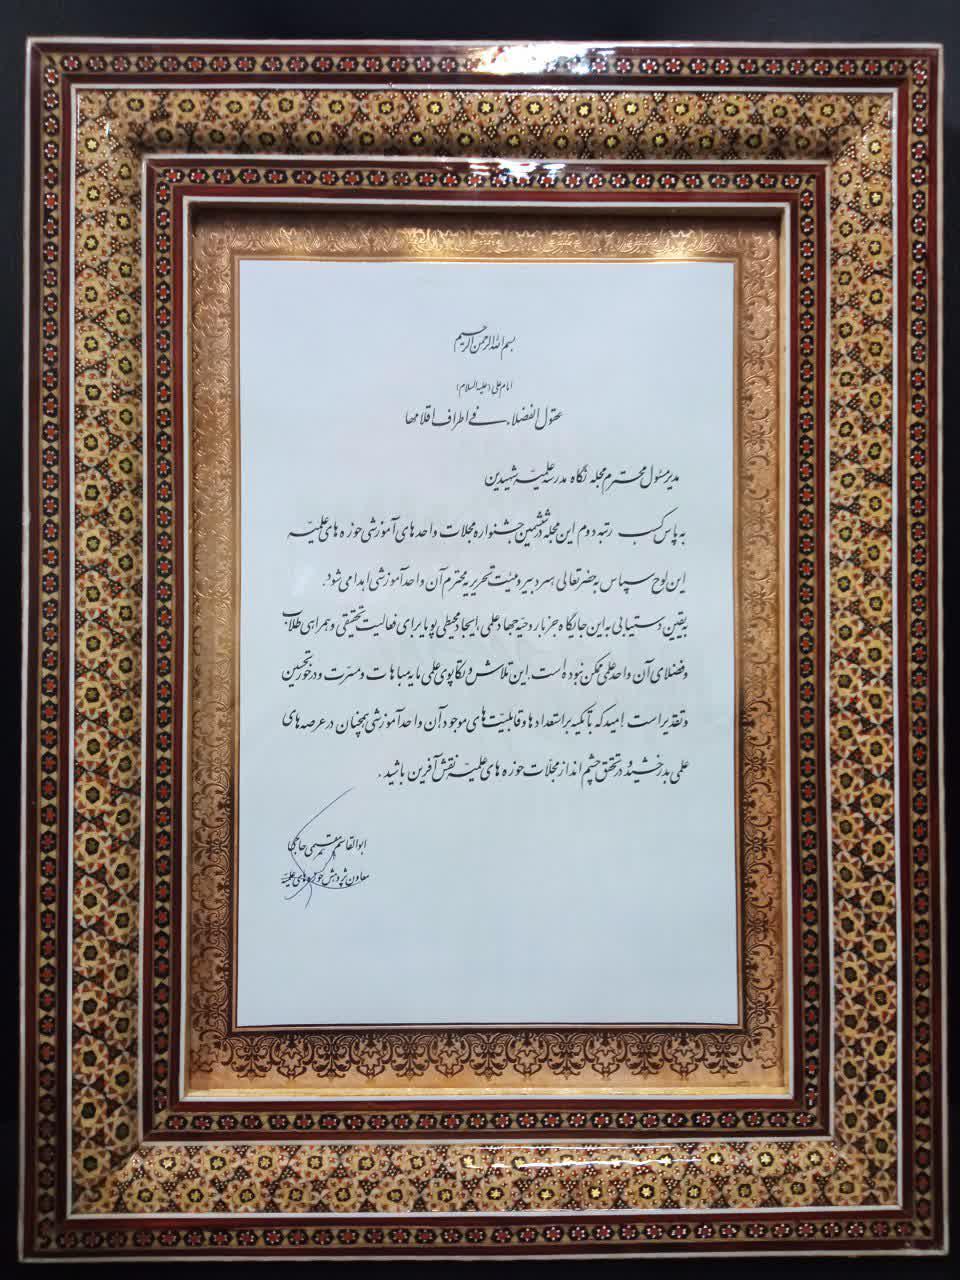 بسم الله الرحمن الرحیم
امام علی (علیه السلام)
عقول الفضلاء فی اطراف اقلامها
مدیر مسئول محترم مجله نگاه مدرسه علمیّه شهیدین
به پاس کسب رتبه دوم این مجله در ششمین جشنواره مجلات واحدهای آموزشی حوزه های علمیّه
این لوح سپاس به حضرتعالی، سردبیر و هیئت تحریریه محترم آن واحد آموزشی اهدا می شود.
بیقین دستیابی به این جایگاه جز با روحیه جهاد علمی، ایجاد محیطی پویا برای فعالیت تحقیقی و همراهی طلاب
و فضلای آن واحد علمی ممکن نبوده است. این تلاش و تکاپوی علمی مایه مباهات و مسرّت و در خور تحسین
و تقدیر است. امید که با تکیه بر استعدادها و قابلیّت های موجود، آن واحد آموزشی همچنان در عرصه های
علمی بدرخشید و در تحقق چشم انداز مجلّات حوزه های علمیّه نقش آفرین باشید.
ابوالقاسم مقیمی حاجی
معاون پژوهش حوزه های علمیّه